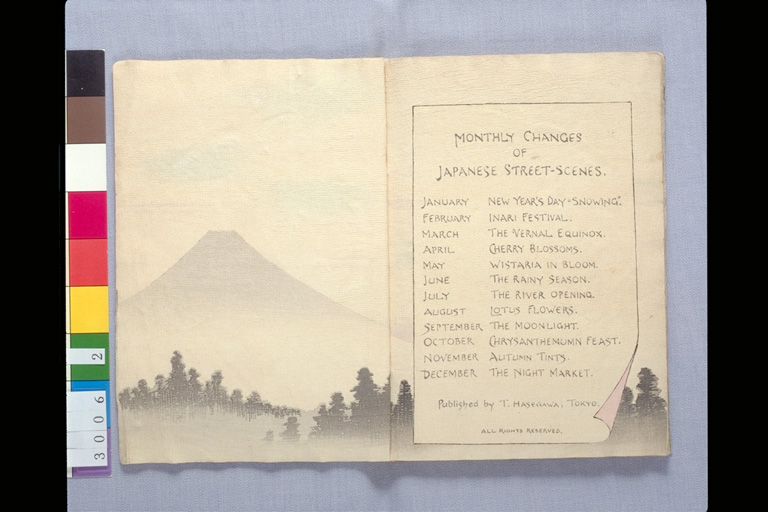 MONTHLY CHANGES
OF
JAPANESE STREET-SCENES.
JANUARY NEW YEAR'S DAY-"SNOWING".
FEBRUARY INARI FESTIVAL.
MARCH THE VERNAL EQUINOX.
APRIL CHERRY BLOSSOMS.
MAY WISTARIA IN BLOOM.
JUNE THE RAINY SEASON.
JULY THE RIVER OPENING.
AUGUST LOTUS FLOWERS.
SEPTEMBER THE MOONLIGHT.
OCTOBER CHRYSANTHEMUMN FEAST.
NOVEMBER AUTUMN TINTS.
DECEMBER THE NIGHT MARKET.
Published by T. HASEGAWA, TOKYO.
ALL RIGHTS RESERVED.
3006 2